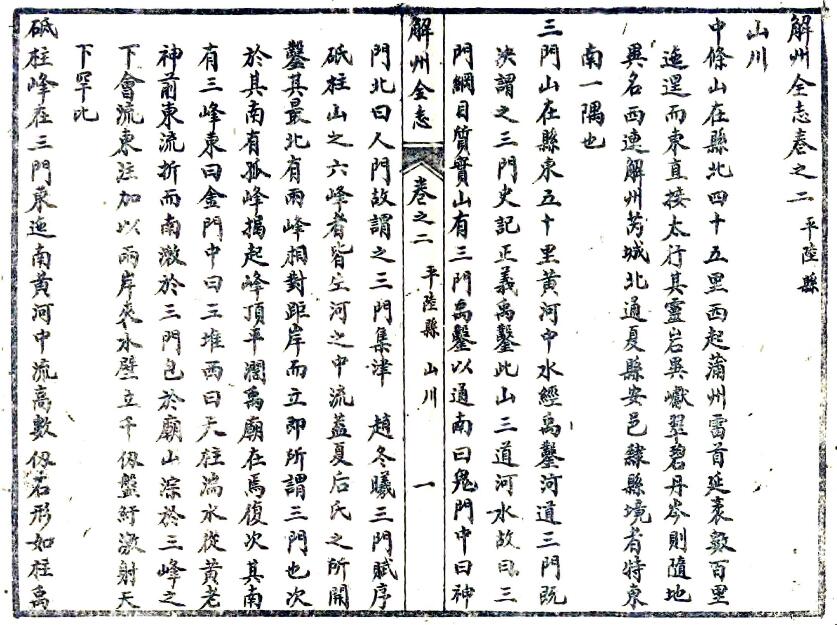 解州全志卷之二 平陸縣
山川
中條山在縣北四十五里西起蒲州雷首延袤數百里
迤逞而東直接太行其靈岩異巘翠碧丹岑則隨地
異名西連解州芮城北通夏縣安邑隸縣境者特東
南一隅也
三門山在縣東五十里黃河中水經禹鑿河道三門既
决謂之三門史記正義禹鑿此山三道河水故曰三
門綱目質實山有三門禹鑿以通南曰鬼門中曰神
解州全志 卷之二 平陸縣 山川 一
門北曰人門故謂之三門集津 趙冬曦三門賦序
砥柱山之六峰者皆生河之中流蓋夏后氏之所開
鑿其最北有兩峰相對距岸而立即所謂三門也次
於其南有孤峰揭起峰頂平濶禹廟在焉復次其南
有三峰東曰金門中曰三堆西曰天柱湍水從黃老
神前東流折而南激於三門包於廟山淙於三峰之
下會流東注加以兩岸夾水壁立千仭盤紆激射天
下罕比
砥柱峰在三門東迤南黃河中流高數仭石形如柱禹